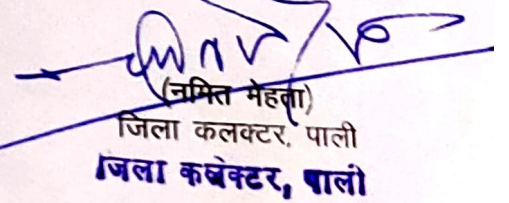 (नमित मेहता)
जिला कलक्टर, पाली
जिला कलक्टर, पाली